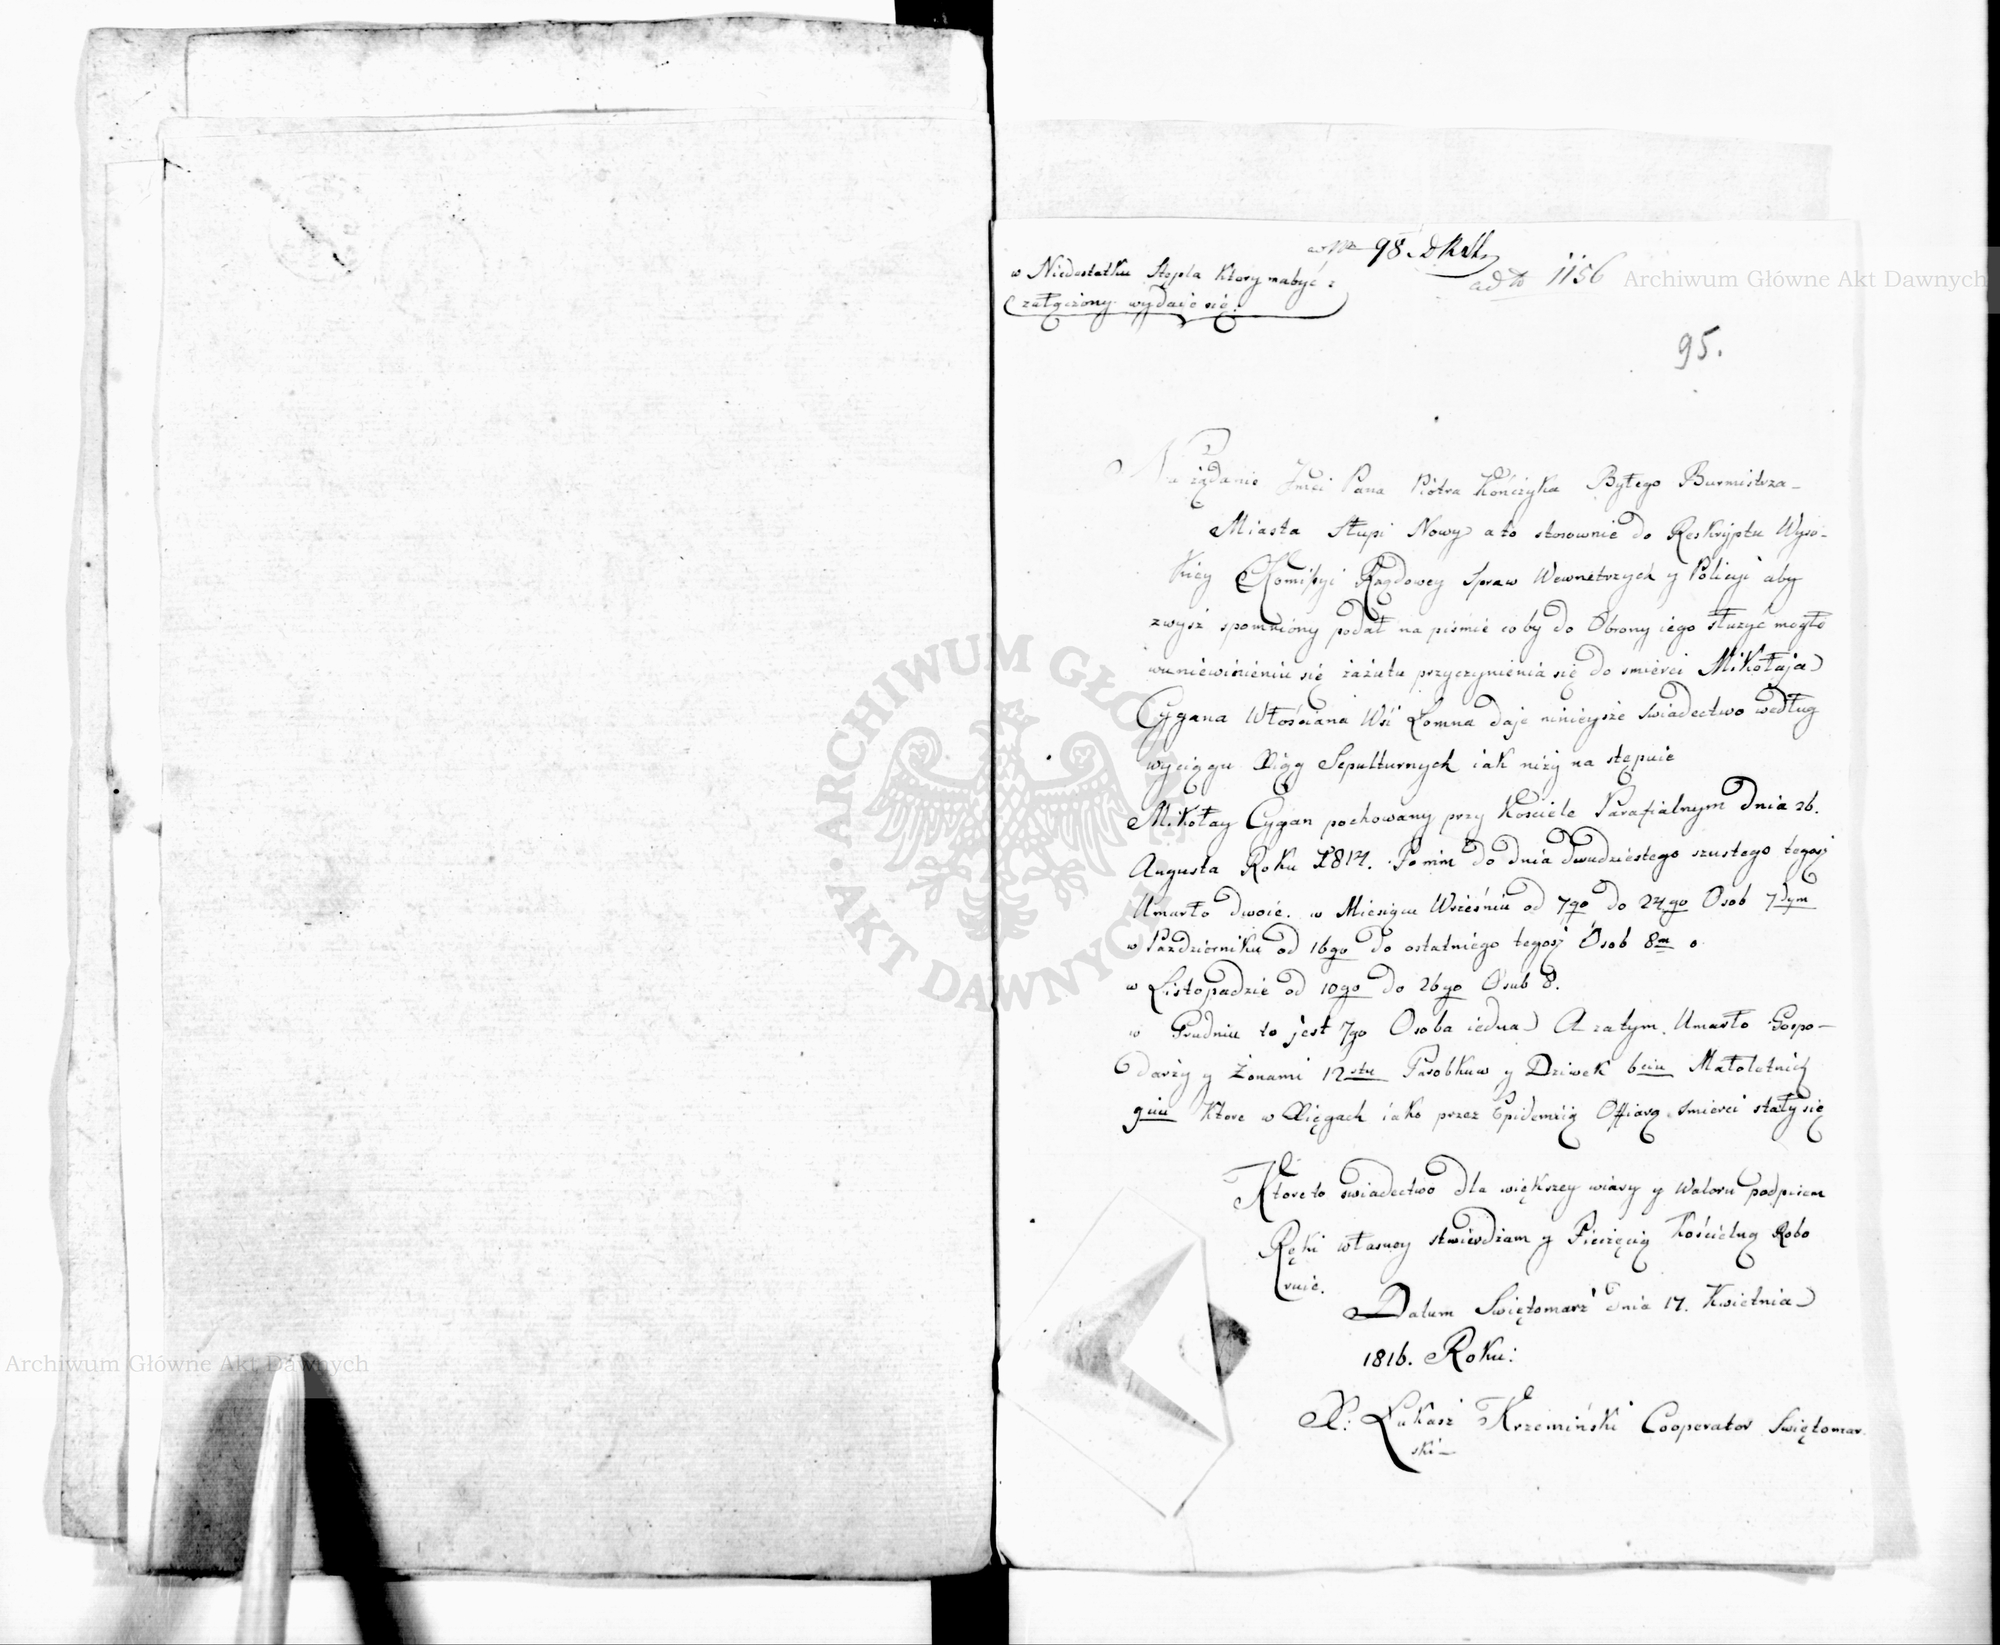 98
w Niedostatku Stępla Ktory mabyć
załączony wydaie się.
ad 1156
Archiwum Główne Akt Dawnych
95.
Na żądanie Jmci Pana Piotra Kończyka Byłego Burmistrza
Miasta Słupi Nowy a to stosownie do Reskryptu Wyso-
kiey Komissyi Rządowey Spraw Wewnetrzych y Policyi aby
zwysz spomniony podał na piśmie co by do Obrony iego służyć mogło
wuniewinieniu się zażutu przyczynienia się do smierci Mikołaja
Cygana Włościana Wśi Łomna daje ninieysze Swiadectwo według
wyciągu Xiąg Sepulturnych iak niży na stępuie
Mikołay Cygan pochowany przy Kosciele Parafialnym Dnia 26.
Augusta Roku 1814. Po nim do dnia dwudziestego szustego tegoż
Umarło dwoie. w Miesiącu Wrześniu od 7go do 24go Osob 7dym
w Pazdzierniku od 16go do ostatniego tegoż Osob 8m
w Listopadzie od 10go do 26go Osub 8.
w Grudniu to jest 7go Osoba iedna A zatym Umarło Gospo-
darzy y Żonami 12stu Parobkuw y Dziwek 6ciu Małoletnich
9ciu Ktore w Xięgach iako przez Epidemią Offiarą Smierci stały się
Ktoreto swiadectwo dla większey wiary y Waloru podpisem
Ręki własney stwierdzam y Pieczęcią Kościelną Robo
ruie.
Datum Swiętomarz dnia 17. Kwietnia
1816. Roku:
X: Łukasz Krzemiński Cooperator Swiętomar
ski
ARCHIWUM GŁÓWNE AKT DAWNYCH
Archiwum Główne Akt Dawnych